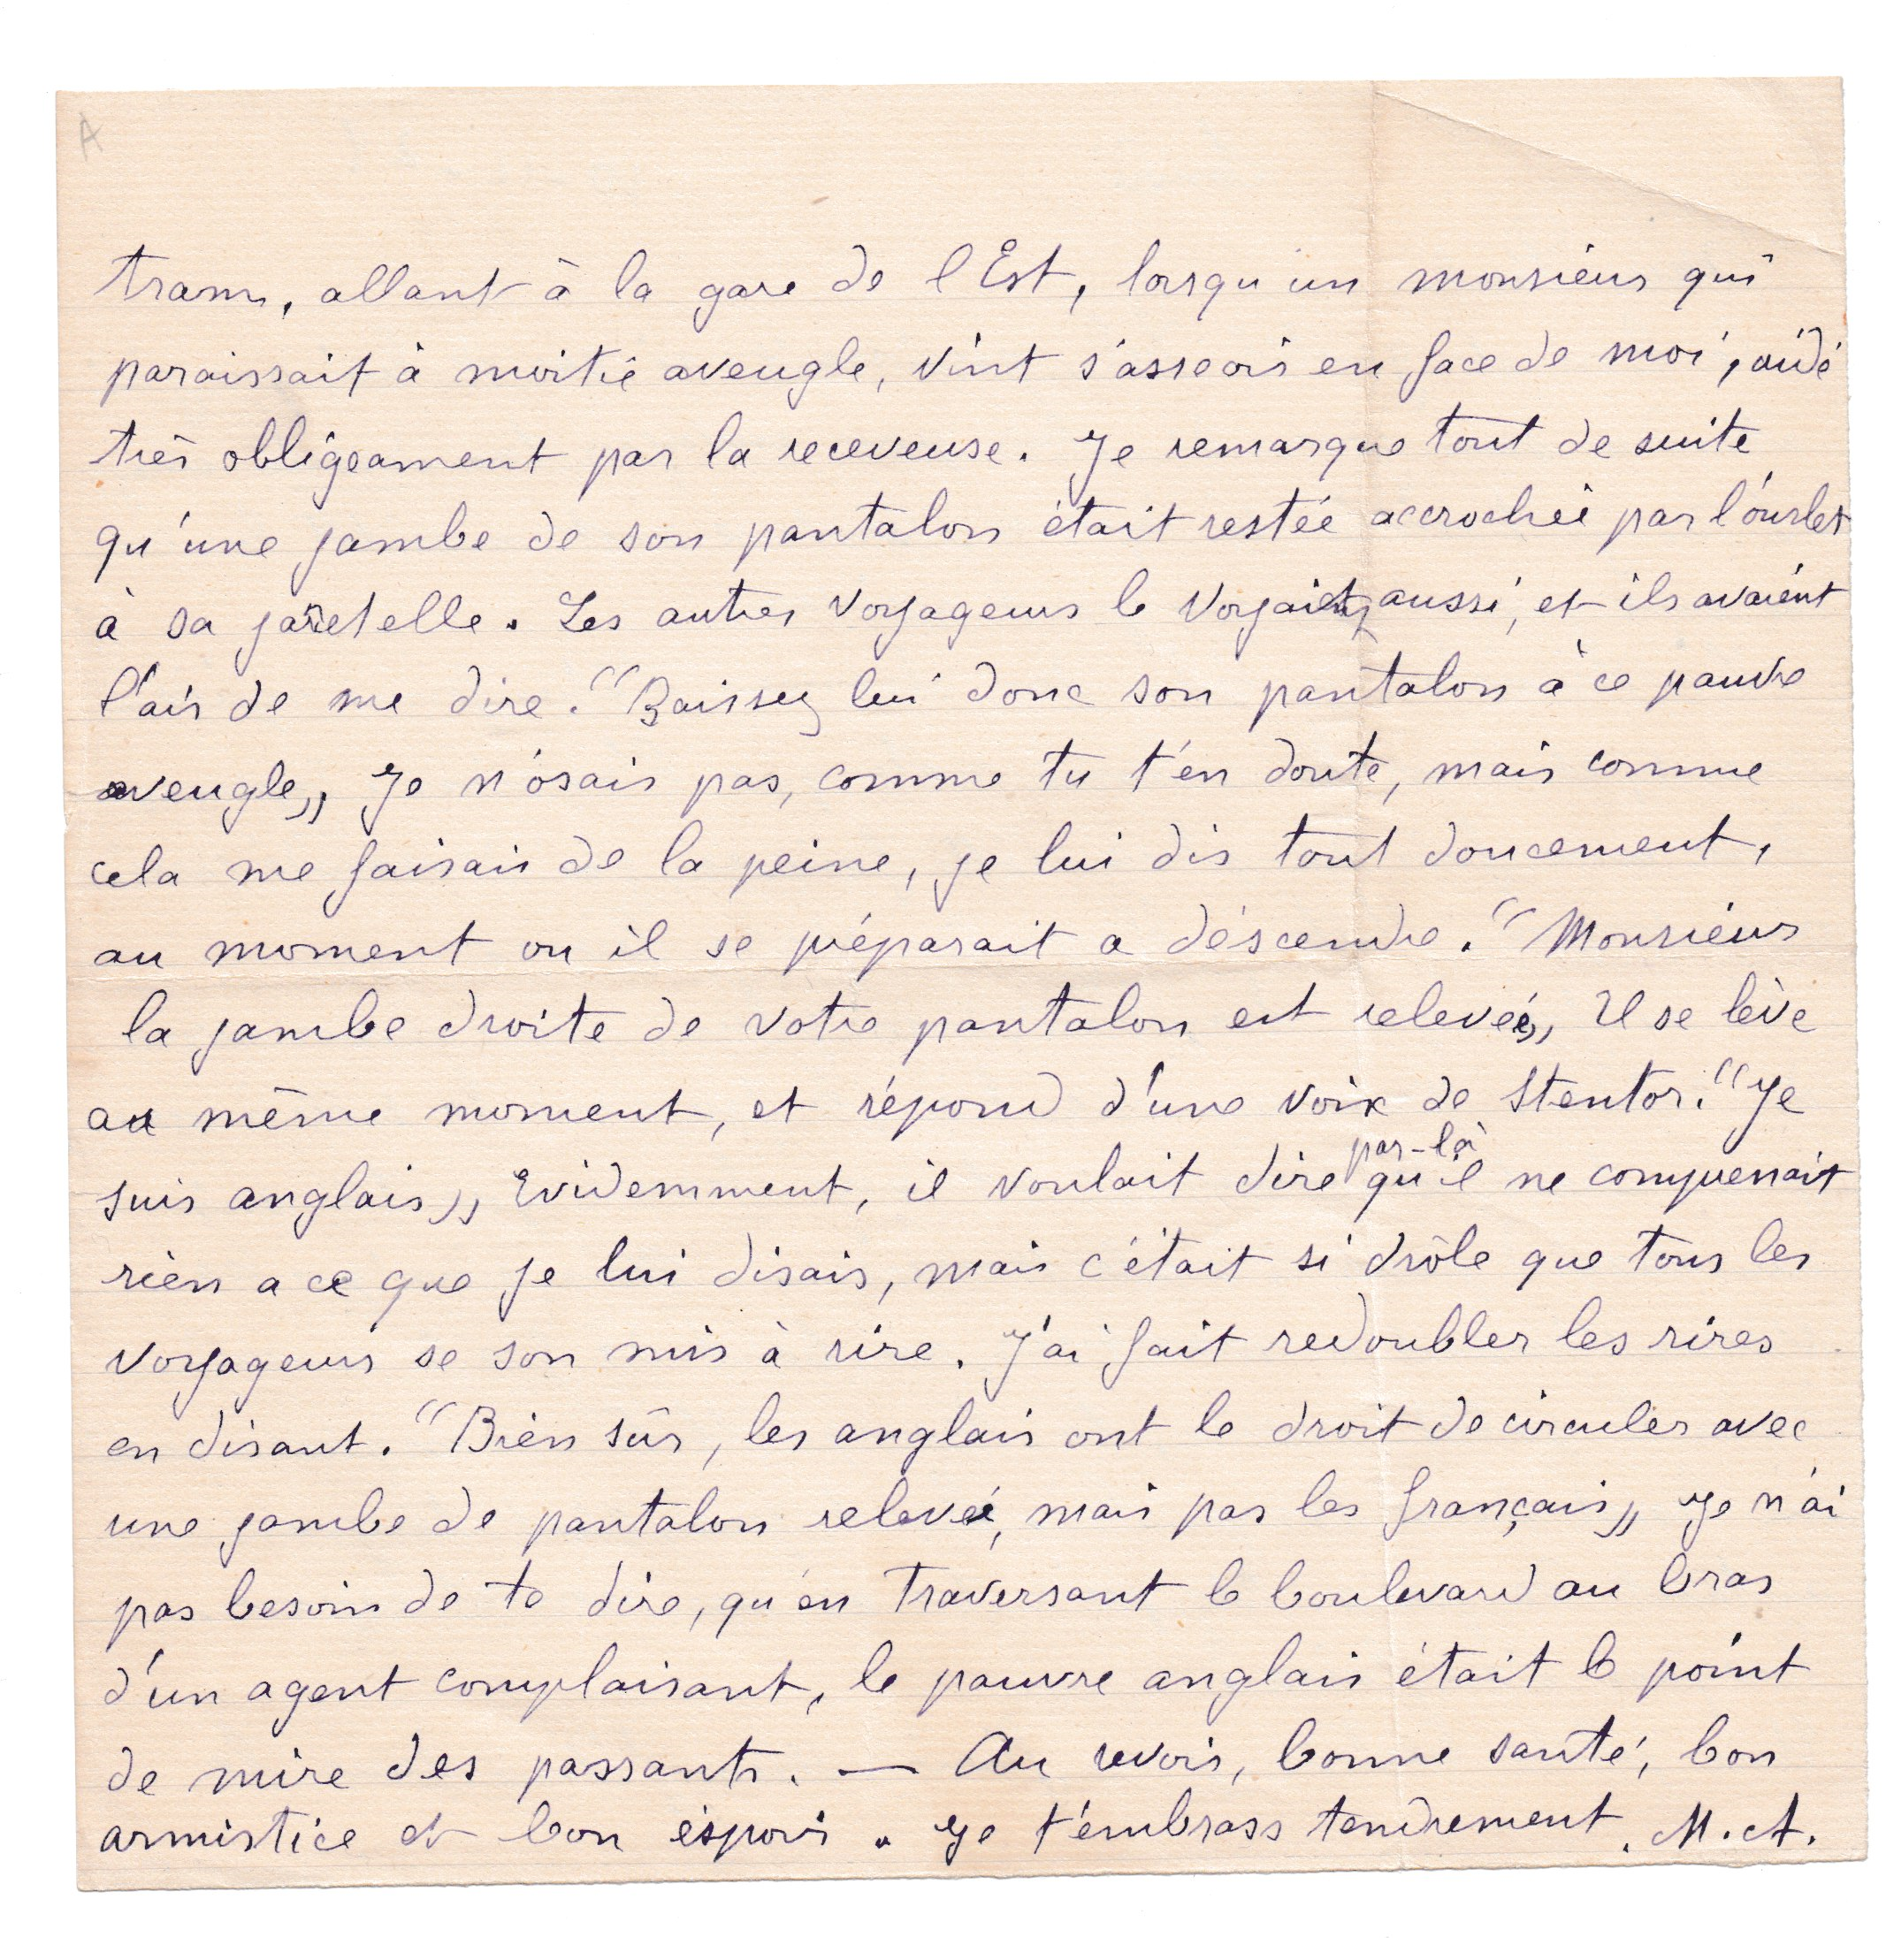 A
tram, allant à la gare de l'Est, lorsqu'un monsieur qui
paraissait à moitié aveugle, vint s'asseoir en face de moi, aidé
très obligeament par la receveuse. Je remarque tout de suite
qu'une jambe de son pantalon était restée accrochée par l'ourlet
à sa jaretelle. Les autres voyageurs le voyaient aussi, et ils avaient
l'air de me dire. "Baissez lui donc son pantalon à ce pauvre
aveugle„. Je n'osais pas, comme tu t'en doute, mais comme
cela me faisais de la peine, je lui dis tout doucement,
au moment ou il se préparait a déscendre. "Monsieur
la jambe droite de votre pantalon est relevée„ Il se lève
au même moment, et répond d'une voix de Stentor. "Je
suis anglais„ Evidemment, il voulait dire par-là qu'il ne comprenait
rien a ce que je lui disais, mais c'était si drôle que tous les
voyageurs se son mis à rire. J'ai fait redoubler les rires
en disant. "Bien sûr, les anglais ont le droit de circuler avec
une jambe de pantalon relevée, mais pas les français„ Je n'ai
pas besoin de te dire, qu'en traversant le boulevard au bras
d'un agent complaisant, le pauvre anglais était le point
de mire des passants. — Au revoir, bonne santé, bon
armistice et bon éspoir. Je t'embrass tendrement. M. A.